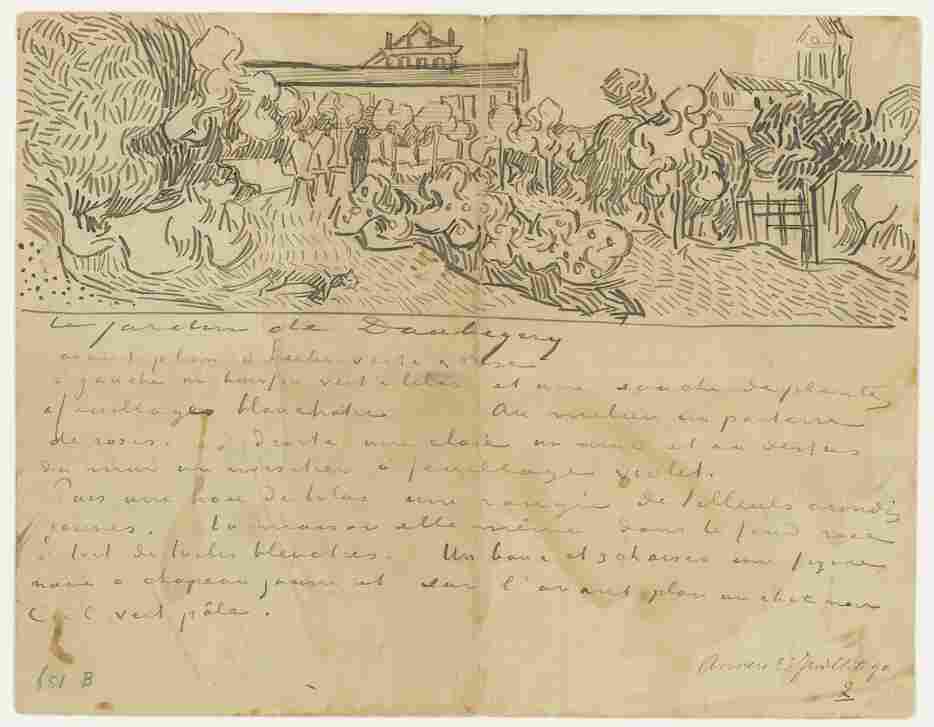 Le jardin de Daubigny
avant plan d'herbe verte & rose
à gauche un buisson vert & lilas et une souche de plantes
à feuillages blanchâtres Au milieu un parterre
de roses. à droite une claie un mur et au dessus
du mur un noisetier à feuillage violet.
Puis une haie de lilas une rangée de tilleuls arrondis
jaunes. La maison elle même dans le fond rose
à toit de tuiles bleuâtres. Un banc et 3 chaises une figure
noire à chapeau jaune et sur l'avant plan un chat noir
Ciel vert pâle.
Auvers 23 Juillet 90
2
651 B